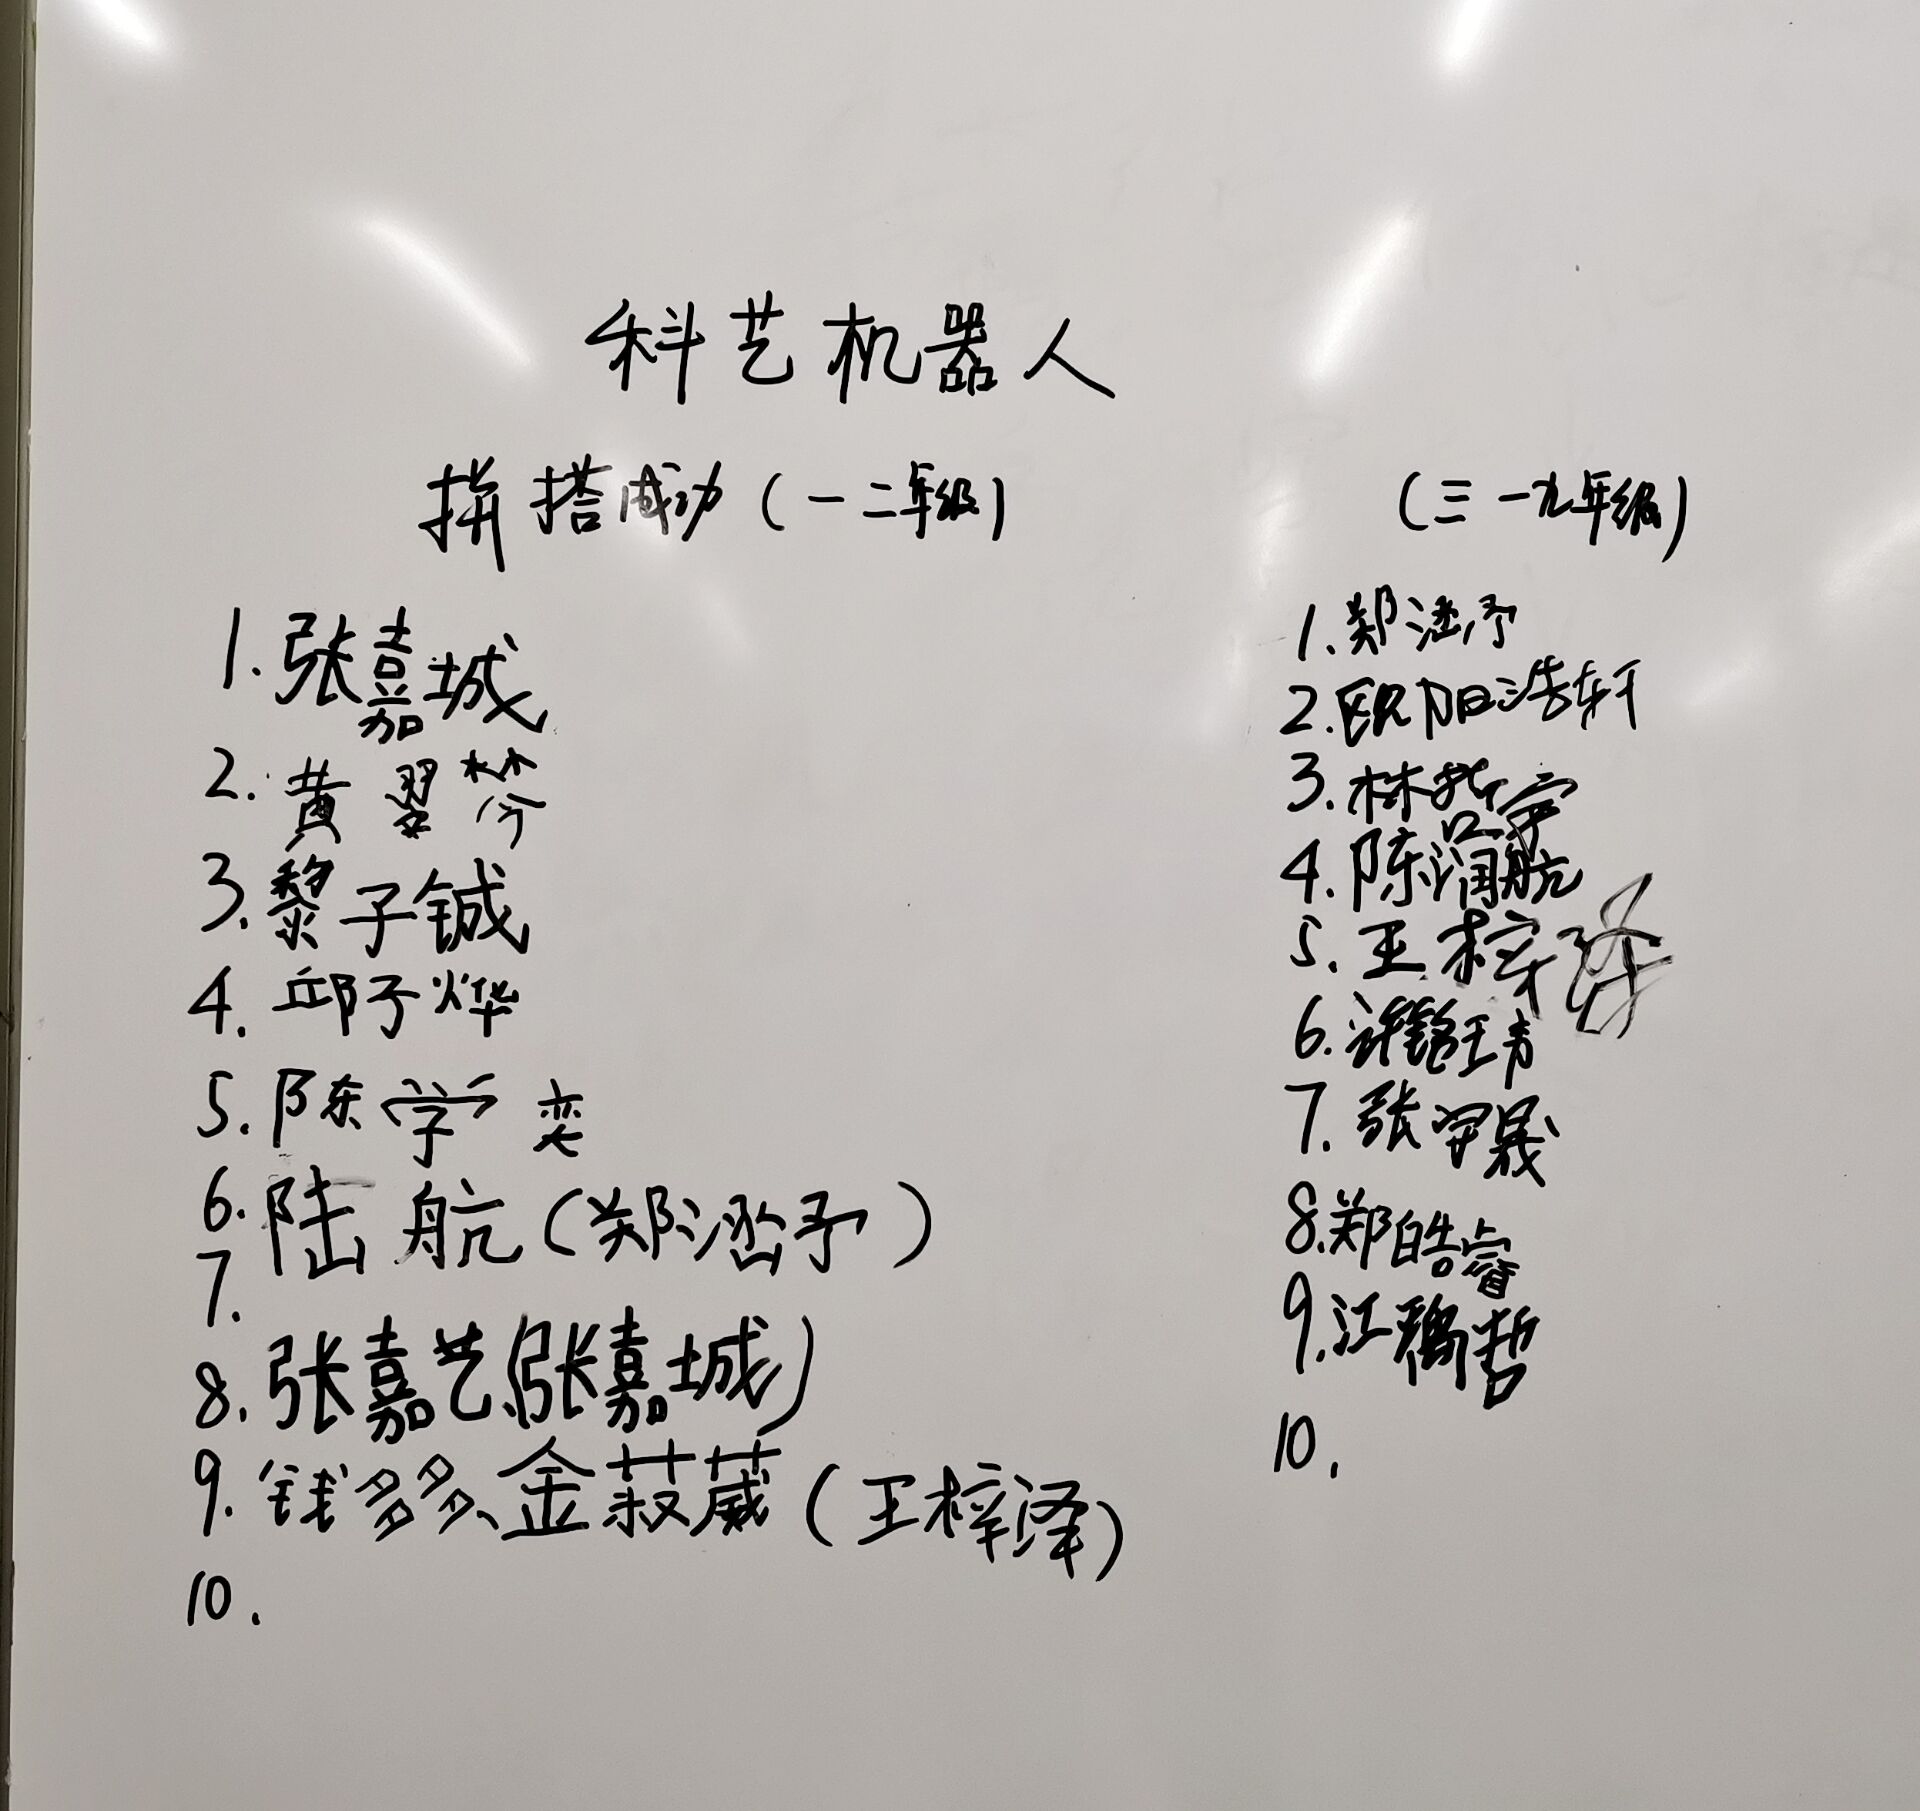 科艺机器人
拼搭成功（一二年级）
1. 张嘉城
2. 黄翠棼
3. 黎子铖
4. 邱子烨
5. 陈学奕
6. 陆航（郑涵予）
7.
8. 张嘉艺（张嘉城）
9. 钱多多、金菽葳（王梓泽）
10.
（三一九年级）
1. 郑涵予
2. 欧阳浩轩
3. 林哲宇
4. 陈润航
5. 王梓泽
6. 许铭
7. 张宇晟
8. 郑皓睿
9. 江哲
10.